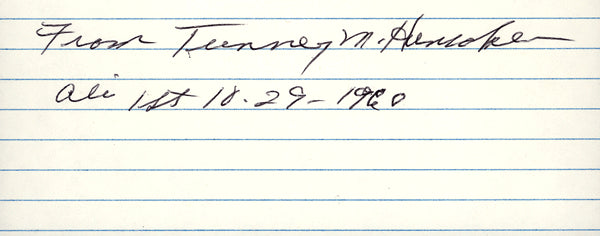 From Tunney M. Hunsaker
Ali 1st 10-29-1960